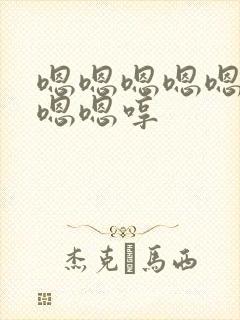 嗯嗯嗯嗯嗯
嗯嗯哼
杰克馬西